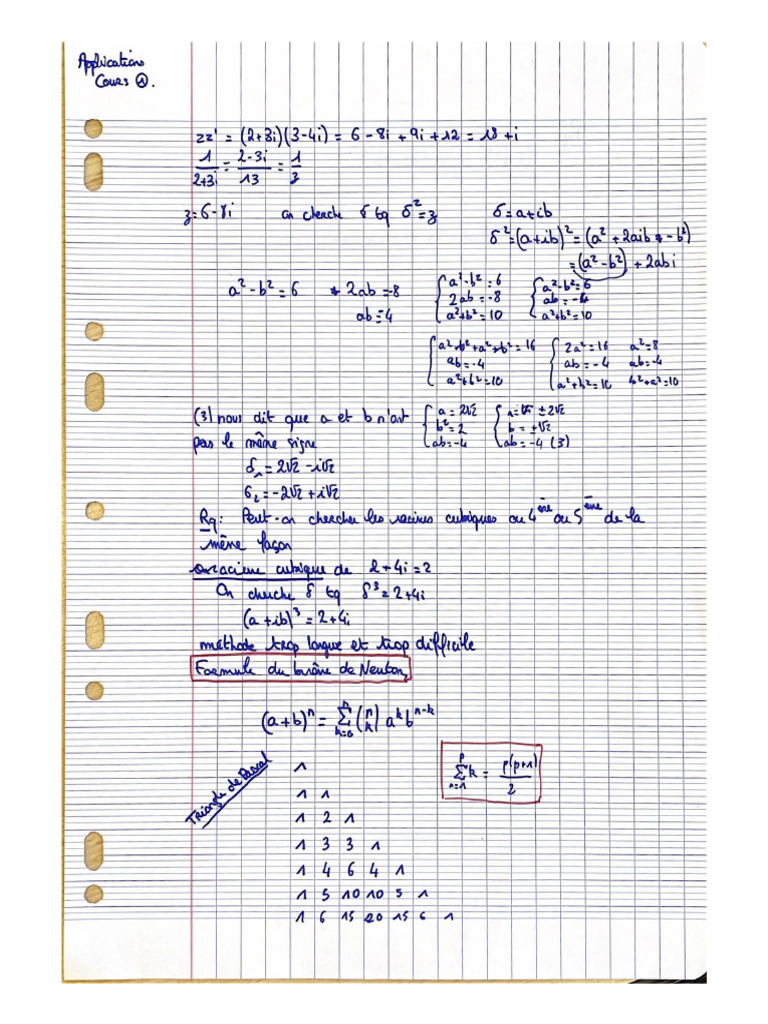 Applications
Cours ①.
zz' = (2+3i)(3-4i) = 6 - 8i + 9i + 12 = 18 + i
1/(2+3i) = (2-3i)/13 = 1/z
z = 6-8i on cherche δ tq δ² = z δ = a+ib
δ² = (a+ib)² = (a² + 2aib + - b²)
= (a² - b²) + 2abi
a² - b² = 6 * 2ab = -8 { a² - b² = 6 { a² - b² = 6
ab = 4 2ab = -8 ab = -4
a² + b² = 10 a² + b² = 10
{ a² - b² + a² + b² = 16 { 2a² = 16 a² = 8
ab = -4 ab = -4 ab = -4
a² + b² = 10 a² + b² = 10 b² + a² = 10
(3) nous dit que a et b n'ont { a = 2√2 { a = ± 2√2
pas le même signe b² = 2 b = +√2
ab = -4 ab = -4 (3)
δ₁ = 2√2 - i√2
δ₂ = -2√2 + i√2
Rq: Peut-on chercher les racines cubiques ou 4ème ou 5ème de la
même façon
racine cubique de 2 + 4i = 2
On cherche δ tq δ³ = 2+4i
(a + ib)³ = 2+4i
méthode trop longue et trop difficile
Formule du binôme de Newton,
(a+b)ⁿ = Σ_{k=0}^{n} (n k) aᵏ bⁿ⁻ᵏ
Triangle de Pascal
Σ_{n=1}^{p} k = p(p+1)/2
1
1 1
1 2 1
1 3 3 1
1 4 6 4 1
1 5 10 10 5 1
1 6 15 20 15 6 1